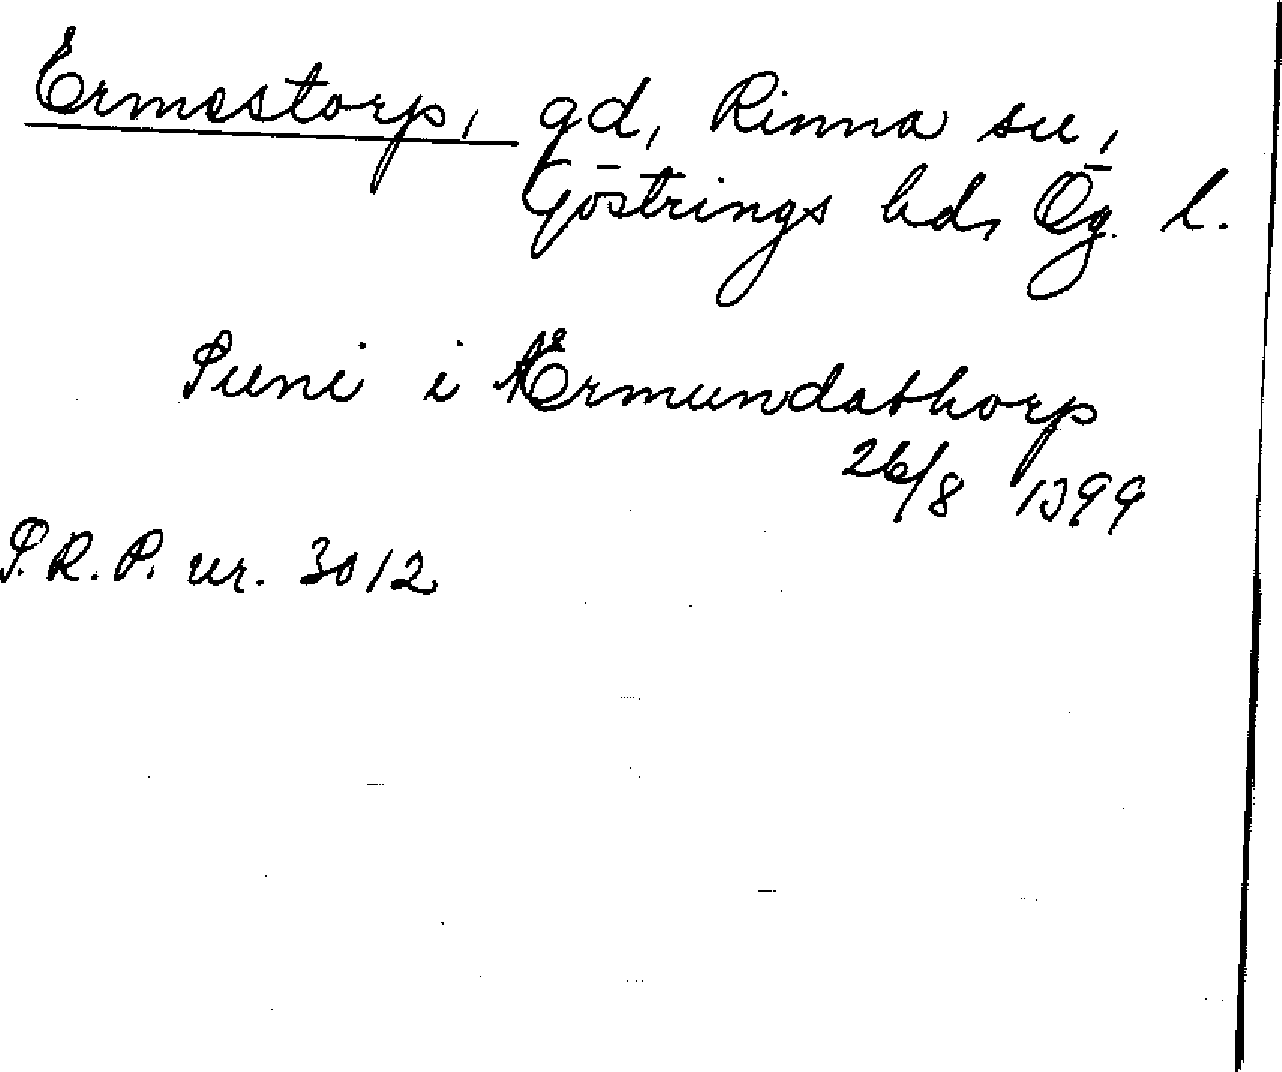 Ermestorp, gd, Rinna sn,
Göstrings hd, Ög. l.
Suni i Ærmundathorp
26/8 1399
S.R.P. nr. 3012